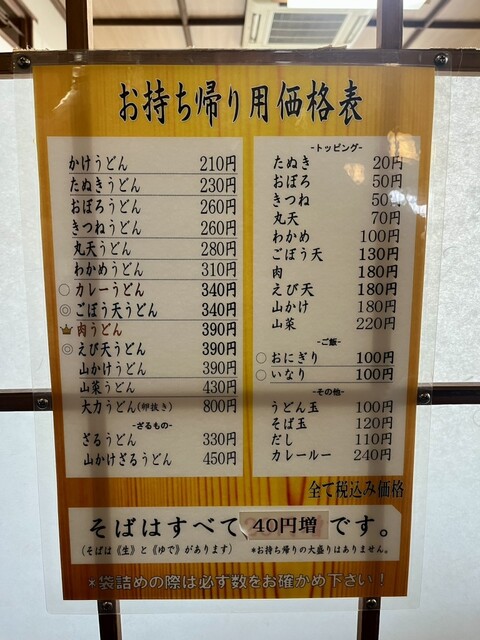 お持ち帰り用価格表
かけうどん 210円
たぬきうどん 230円
おぼろうどん 260円
きつねうどん 260円
丸天うどん 280円
わかめうどん 310円
○カレーうどん 340円
◎ごぼう天うどん 340円
肉うどん 390円
◎えび天うどん 390円
山かけうどん 390円
山菜うどん 430円
大力うどん(卵抜き) 800円
-ざるもの-
ざるうどん 330円
山かけざるうどん 450円
-トッピング-
たぬき 20円
おぼろ 50円
きつね 50円
丸天 70円
わかめ 100円
ごぼう天 130円
肉 180円
えび天 180円
山かけ 180円
山菜 220円
-ご飯-
○おにぎり 100円
○いなり 100円
-その他-
うどん玉 100円
そば玉 120円
だし 110円
カレールー 240円
全て税込み価格
そばはすべて 40円増 です。
(そばは《生》と《ゆで》があります) *お持ち帰りの大盛りはありません。
*袋詰めの際は必す数をお確かめ下さい!